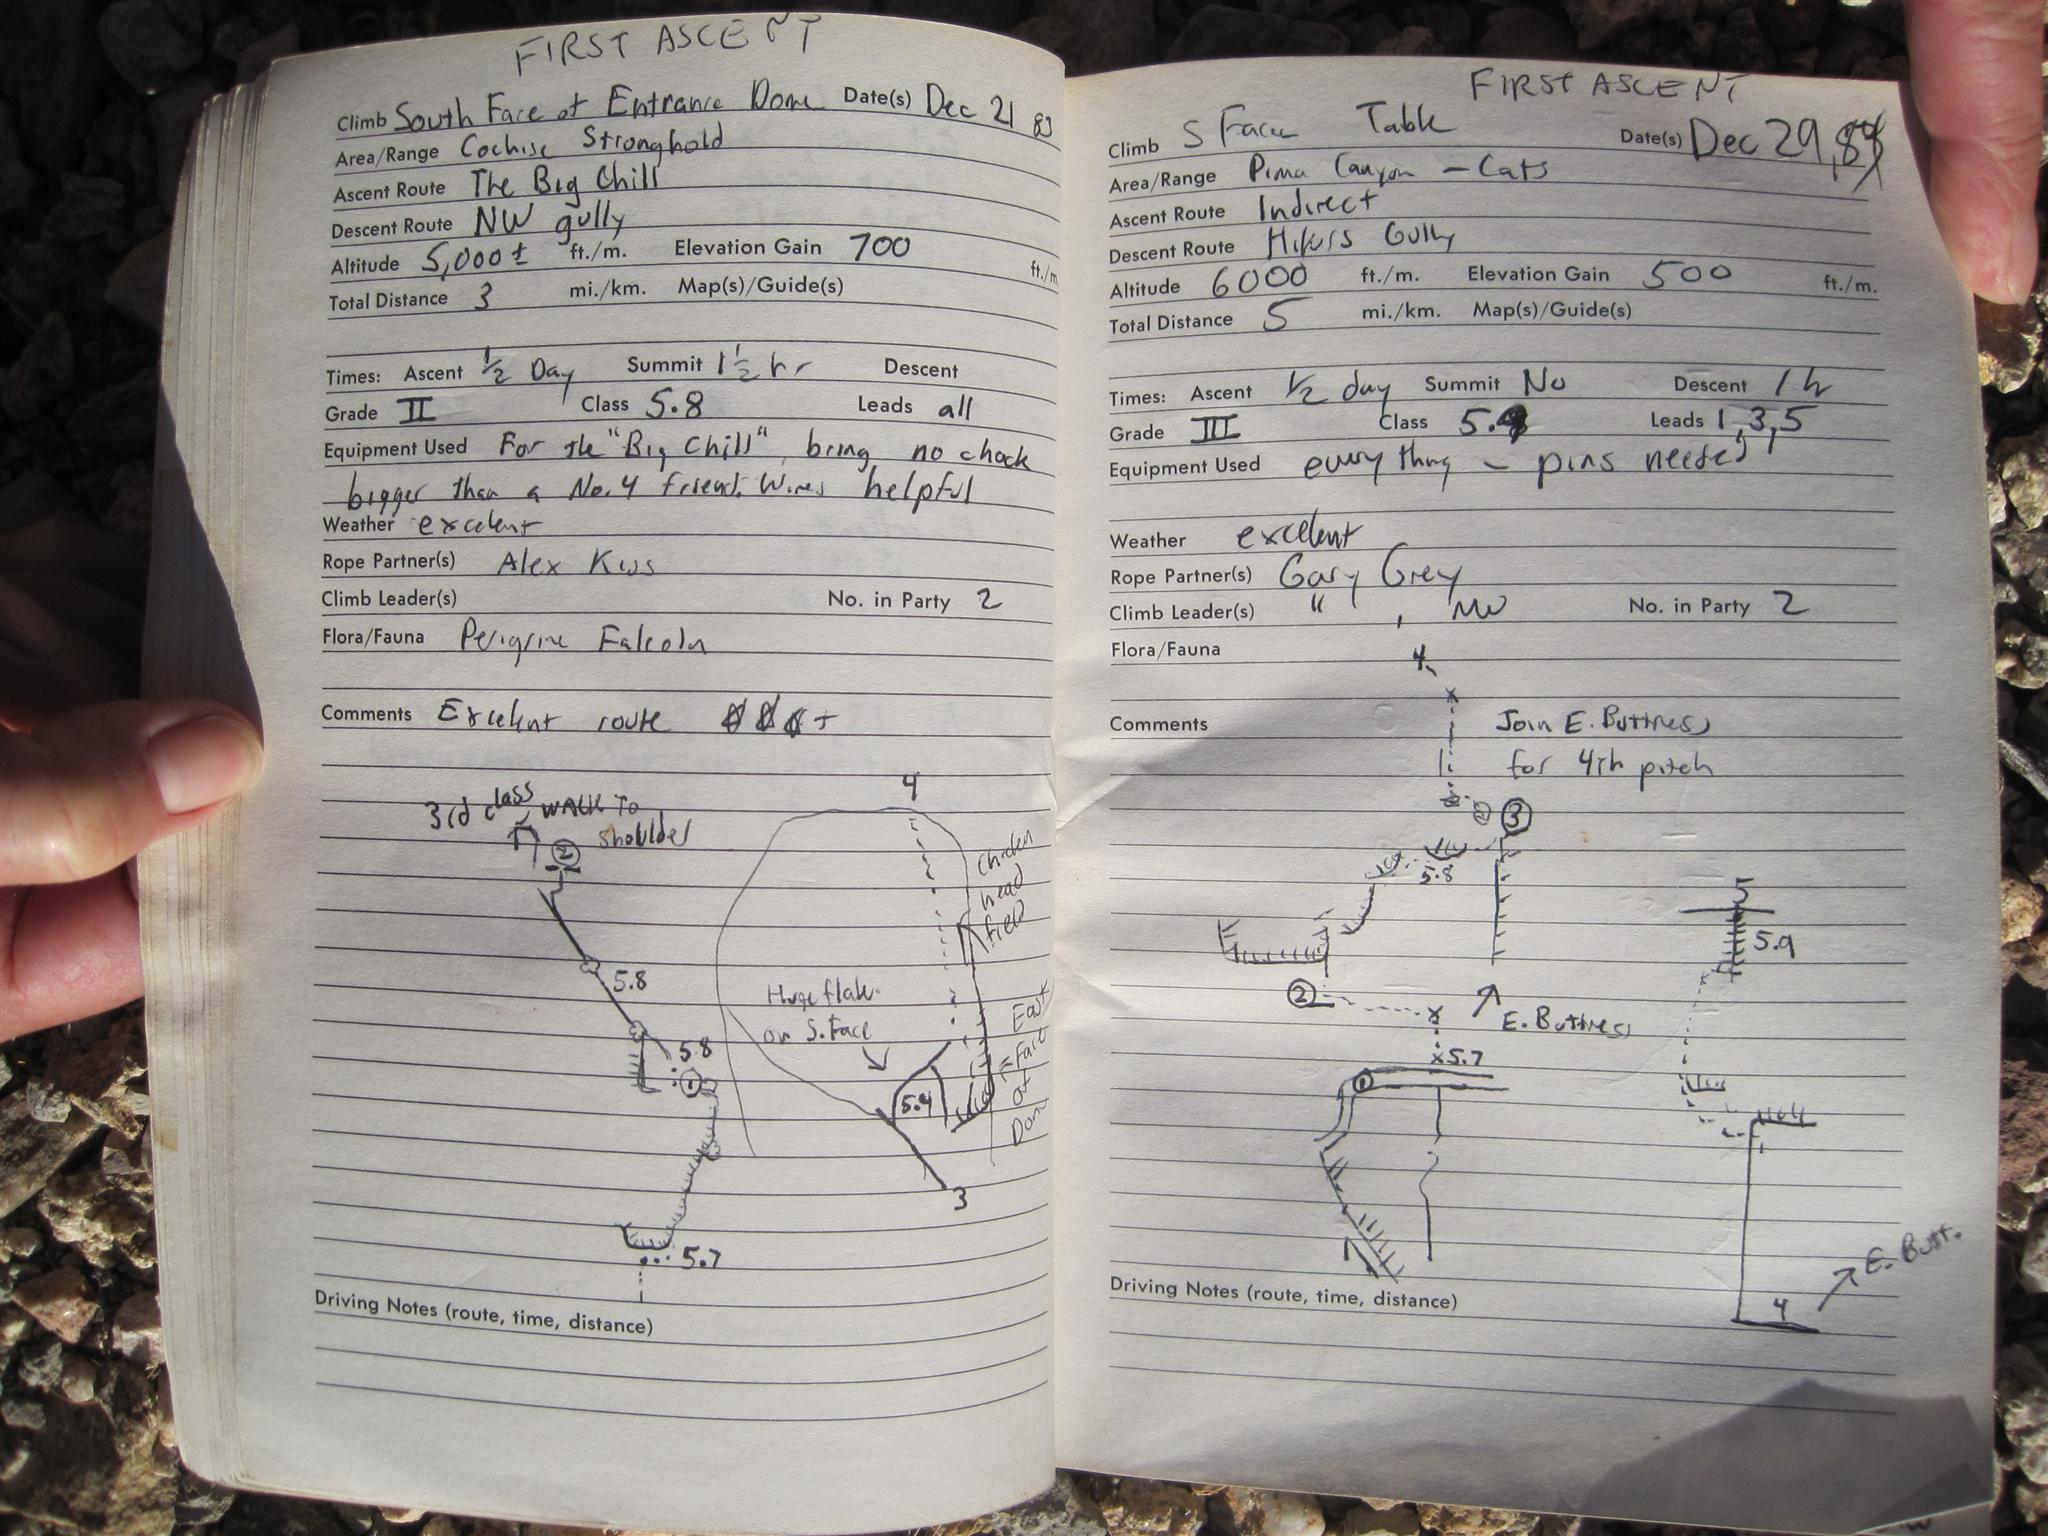 FIRST ASCENT
Climb South Face of Entrance Dome Date(s) Dec 21 83
Area/Range Cochise Stronghold
Ascent Route The Big Chill
Descent Route NW gully
Altitude 5,000± ft./m. Elevation Gain 700 ft./m
Total Distance 3 mi./km. Map(s)/Guide(s)
Times: Ascent 1/2 Day Summit 1 1/2 hr Descent
Grade II Class 5.8 Leads all
Equipment Used For the "Big Chill", bring no chock
bigger than a No. 4 friend. Wires helpful
Weather excelent
Rope Partner(s) Alex
Climb Leader(s) No. in Party 2
Flora/Fauna Perigrine Falcoln
Comments Excelent route +
3rd class WALK TO
shoulder
2
4
Chicken
head
field
5.8
Huge flake
on S. Face
East
Face
of
Dome
5.8
1
5.4
3
5.7
Driving Notes (route, time, distance)
FIRST ASCENT
Climb S Face Table Date(s) Dec 29, 84
Area/Range Pima Canyon - Cats
Ascent Route Indirect
Descent Route Hikers Gully
Altitude 6000 ft./m. Elevation Gain 500 ft./m.
Total Distance 5 mi./km. Map(s)/Guide(s)
Times: Ascent 1/2 day Summit No Descent 1 h
Grade III Class 5.9 Leads 1,3,5
Equipment Used everything - pins needed
Weather excelent
Rope Partner(s) Gary Grey
Climb Leader(s) " , No. in Party 2
Flora/Fauna
4
Comments
Join E. Buttress
for 4th pitch
3
5.8
5
5.9
2
E. Buttress
5.7
1
E. Butt.
4
Driving Notes (route, time, distance)